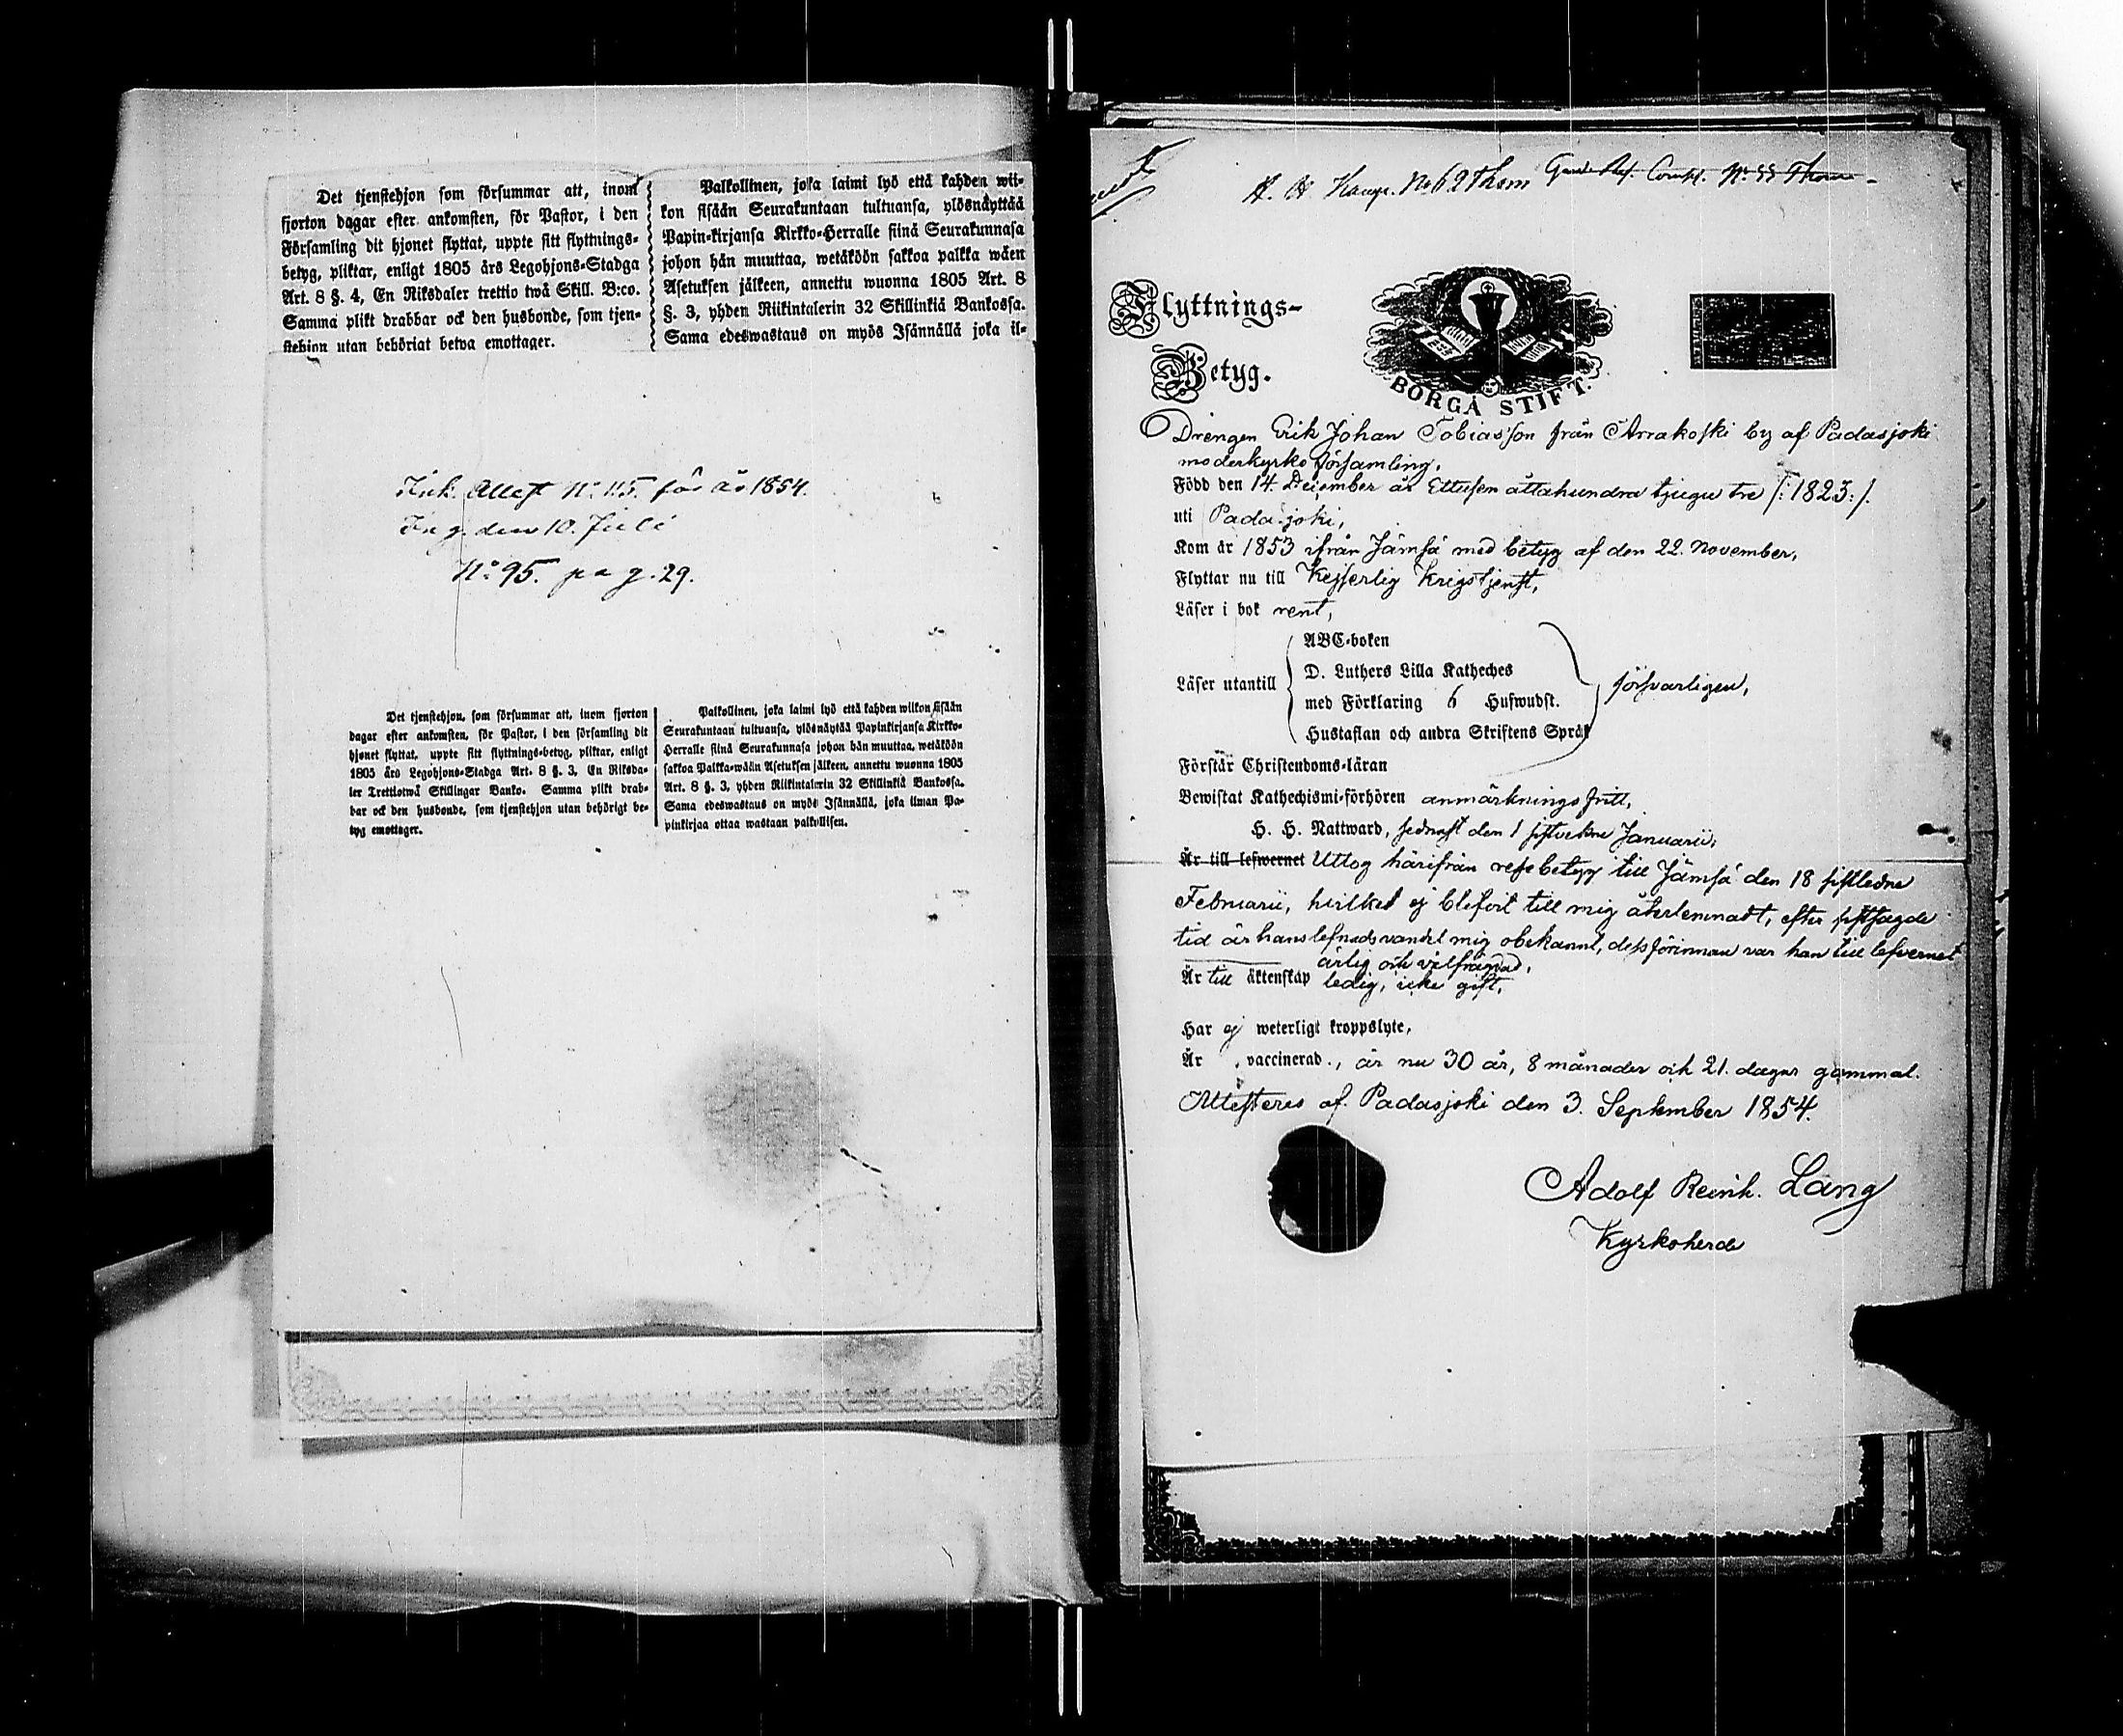 Det tjenstehjon som försummar att, inom
fjorton dagar efter ankomsten, för Pastor, i den
Församling dit hjonet flyttat, uppte sitt flyttnings-
betyg, pliktar, enligt 1805 års Legohjons-Stadga
Art. 8 §. 4, En Riksdaler trettio twå Skill. B:co.
Samma plikt drabbar ock den husbonde, som tjen-
stehjon utan behörigt betyg emottager.
Palkollinen, joka laimi lyö että kahden wii-
kon sisään Seurakuntaan tultuansa, ylösnäyttää
Papin-kirjansa Kirkko-Herralle siinä Seurakunnasa
johon hän muuttaa, wetäköön sakkoa palkka wäen
Asetuksen jälkeen, annettu wuonna 1805 Art. 8
§. 3, yhden Riikintalerin 32 Skillinkiä Bankossa.
Sama edeswastaus on myös Isännällä joka il-
Ink. Attest No 115. för år 1854.
Ing. den 10. Juli
No 95. pag. 29.
Det tjenstehjon, som försummar att, inom fjorton
dagar efter ankomsten, för Pastor, i den församling dit
hjonet flyttat, uppte sitt flyttnings-betyg, pliktar, enligt
1805 års Legohjons-Stadga Art. 8 §. 3, En Riksda-
ler Trettiotwå Skillingar Banko. Samma plikt drab-
bar ock den husbonde, som tjenstehjon utan behörigt be-
tyg emottager.
Palkollinen, joka laimi lyö että kahden wiikon sisään
Seurakuntaan tultuansa, ylösnäytää Papinkirjansa Kirkko-
Herralle siinä Seurakunnasa johon hän muuttaa, wetäköön
sakkoa Palkka-wäin Asetuksen jälkeen, annettu wuonna 1805
Art. 8 §. 3, yhden Riikintalerin 32 Skillinkiä Bankossa.
Sama edeswastaus on myös Isännällä, joka ilman Pa-
pinkirjaa ottaa wastaan palkollisen.
No 62 Thom
Flyttnings-
Betyg.
BORGÅ STIFT.
Drengen Erik Johan Tobiasson från Arrakoski by af Padasjoki
moderkyrko församling.
Född den 14. December år Ettusen åttahundra tjugu tre /: 1823:/.
uti Padasjoki,
Kom år 1853 ifrån Jämsä med betyg af den 22. November,
Flyttar nu till Kejserlig Krigstjenst,
Läser i bok rent,
Läser utantill
ABC-boken
D. Luthers Lilla Katheches
med Förklaring 6 Hufwudst.
Hustaflan och andra Skriftens Språk
försvarligen,
Förstår Christendoms-läran
Bewistat Kathechismi-förhören anmärkningsfritt,
H. H. Nattward, sednast den 1 sistvekne Januarii,
Är till lefwernet Uttog härifrån resebetyg till Jämsä den 18 sistledne
Februarii, hvilket ej blifvit till mig återlemnadt, efter sistsagde
tid är hans lefnadsvandel mig obekannt, dessförinnan var han till lefvernet
ärlig och välfrägdad,
Är till äktenskap ledig, icke gift,
Har ej weterligt kroppslyte,
Är vaccinerad., är nu 30 år, 8 månader och 21. dagar gammal.
Attesteres af. Padasjoki den 3. September 1854.
Adolf Reinh. Lang
Kyrkoherde